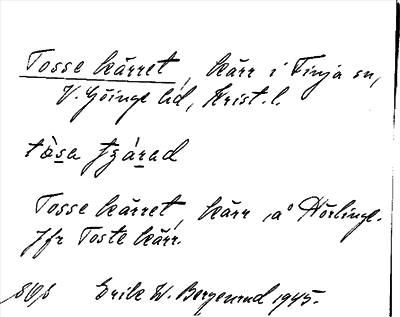 Tosse kärret, kärr i Finja sn,
V. Göinge hd, Krist. l.
Tosse kärret, kärr å Hörlinge.
Jfr Toste kärr.
Erik W. Bergenrud 1945.